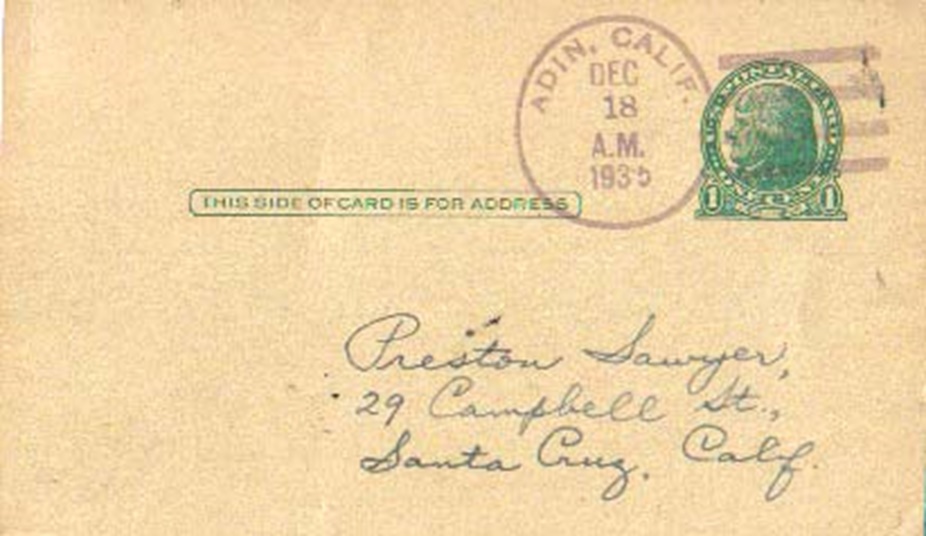 ADIN, CALIF.
DEC
18
A.M.
1935
THIS SIDE OF CARD IS FOR ADDRESS
1 1
Preston Sawyer,
29 Campbell St.,
Santa Cruz, Calif.